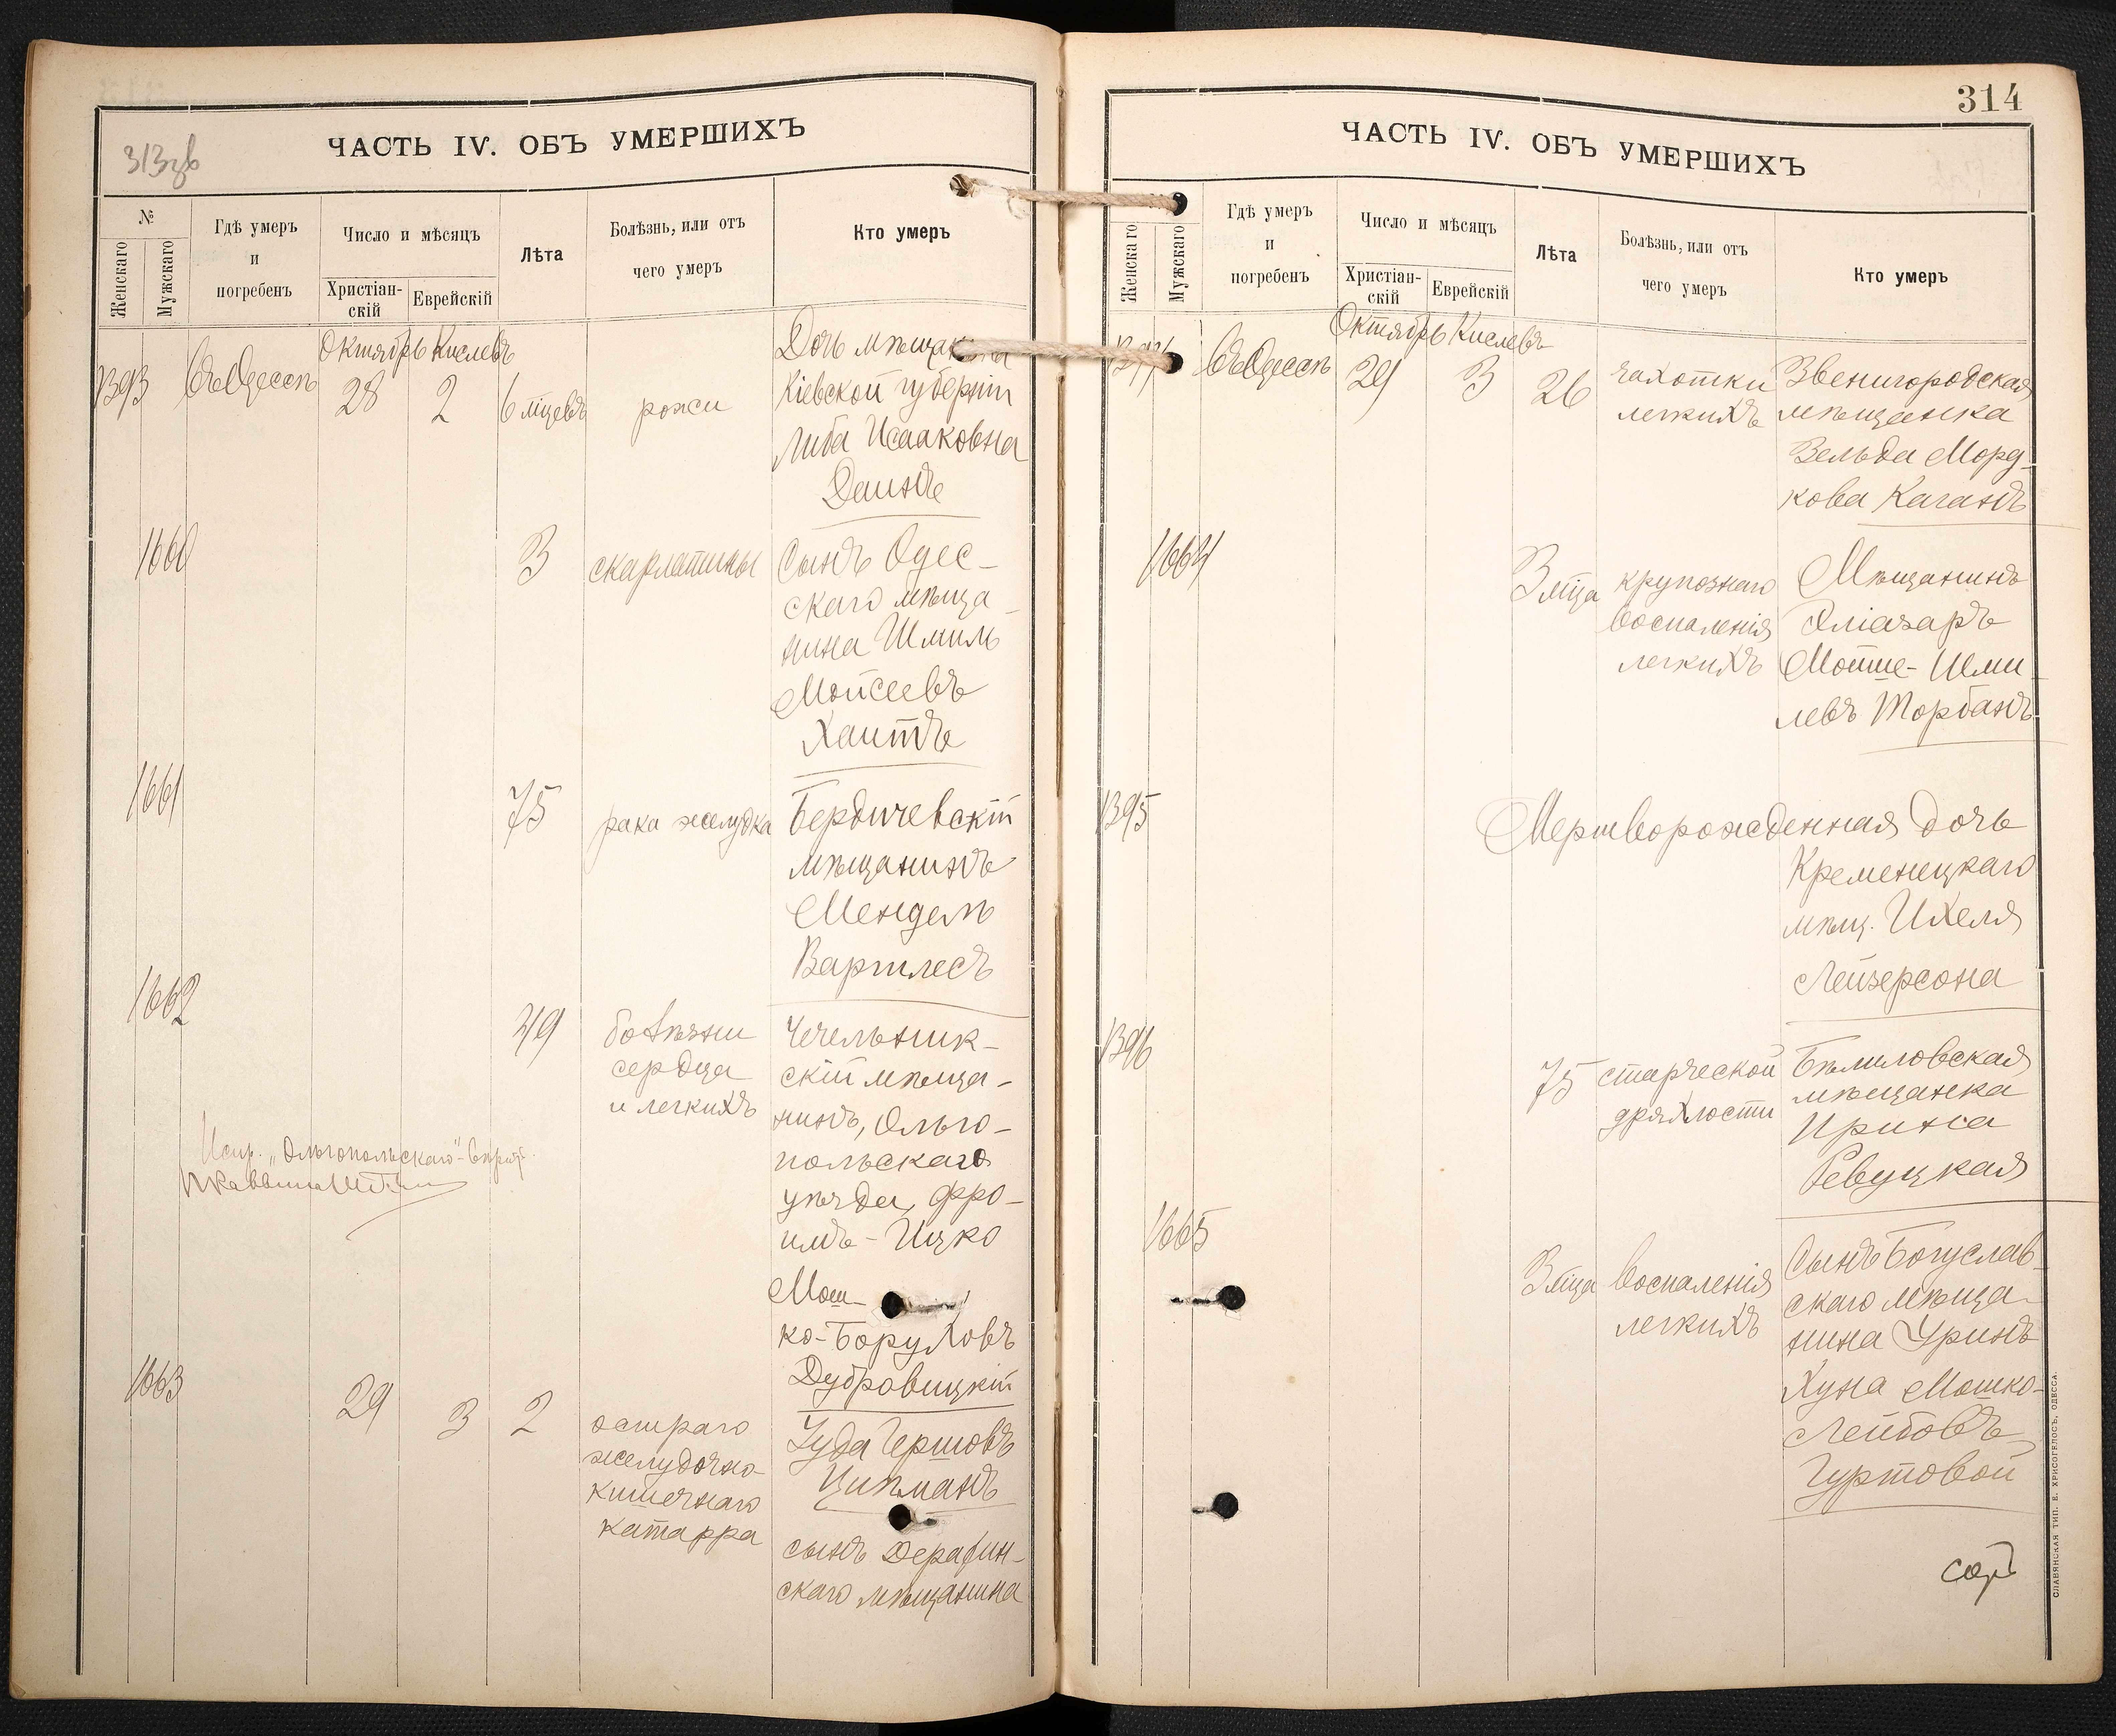 313 об
ЧАСТЬ IV. ОБЪ УМЕРШИХЪ
№
Женскаго
Мужскаго
Гдѣ умеръ
и
погребенъ
Число и мѣсяцъ
Христіан-
скій
Еврейскій
Лѣта
Болѣзнь, или отъ
чего умеръ
Кто умеръ
Октябрь Кислевъ
1393
въ Одессѣ
28
2
6 мѣсяцевъ
рожи
Дочь мѣщанина
Кіевской губерніи
Либа Исааковна
Даинъ
1660
3
скарлатины
Сынъ Одес-
скаго мѣща-
нина Шмиль
Мойсеевъ
Хаитъ
1661
75
рака желудка
Бердичевскій
мѣщанинъ
Мендель
Вартлесъ
1662
49
болѣзни
сердца
и легкихъ
Чечельник-
скій мѣща-
нинъ, Ольго-
польскаго
уѣзда, Фро-
имъ-Ицко
Мош-
ко-Боруховъ
Дубровицкій
Испр. „Ольгопольскаго"-вѣрно
1663
29
3
2
остраго
желудочно-
кишечнаго
катарра
Іуда Гершовъ
Ципманъ
сынъ Деражн-
скаго мѣщанина
314
ЧАСТЬ IV. ОБЪ УМЕРШИХЪ
Женскаго
Мужскаго
Гдѣ умеръ
и
погребенъ
Число и мѣсяцъ
Христіан-
скій
Еврейскій
Лѣта
Болѣзнь, или отъ
чего умеръ
Кто умеръ
Октябрь Кислевъ
1394
въ Одессѣ
29
3
26
чахотки
легкихъ
Звенигородская
мѣщанка
Зельда Морд-
кова Каганъ
1664
3 мѣца
крупознаго
воспаленія
легкихъ
Мѣщанинъ
Эліазаръ
Мойше-Шми-
левъ Торбанъ
1395
Мертворожденная дочь
Кременецкаго
мѣщ. Ихеля
Лейзерсона
1396
75
старческой
дряхлости
Бѣлиловская
мѣщанка
Ириса
Ревуцкая
1665
3 мѣца
воспаленія
легкихъ
Сынъ Богуслав-
скаго мѣща-
нина Уринъ
Хуна Мошко-
Лейбовъ
Гуртовой
СЛАВЯНСКАЯ ТИП. Е. ХРИСОГЕЛОСЪ, ОДЕССА.